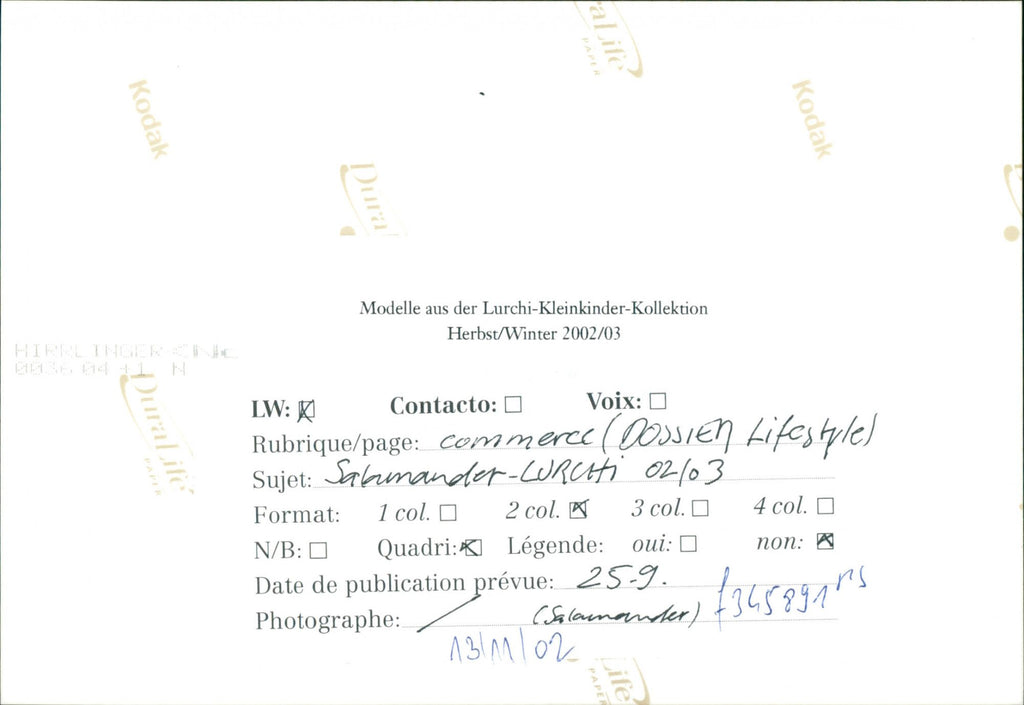 Dura Life
PAPER
Kodak
Kodak
Dura
Modelle aus der Lurchi-Kleinkinder-Kollektion
Herbst/Winter 2002/03
HIRRLINGER
0036 04 +1 N
Dura Life
PAPER
LW: Contacto: Voix:
Rubrique/page: commerce (DOSSIER Lifestyle)
Sujet: Salamander-LURCHI 02/03
Format: 1 col. 2 col. 3 col. 4 col.
N/B: Quadri: Légende: oui: non:
Date de publication prévue: 25-9.
Photographe: / (Salamander) f345891 rs
13/11/02
Life
PAPER